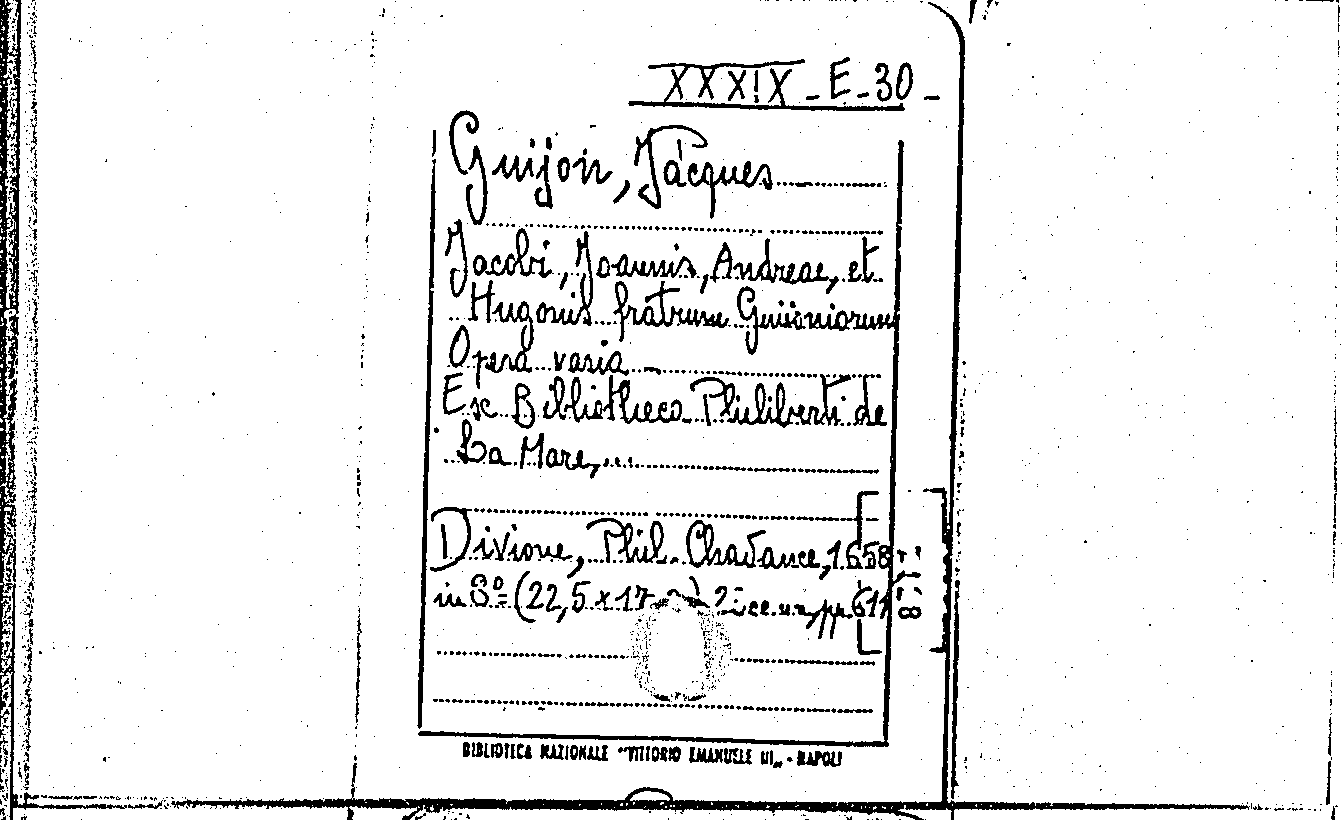 XXXIX-E-30-
Guijon, Jacques
Jacobi, Joannis, Andreae, et
Hugonis fratrum Guiioniorum
Opera varia
Ex Bibliotheca Philiberti de
La Mare,...
Divione, Phil. Chavance, 1658
in 8º (22,5 x 17 pp. 611
BIBLIOTECA NAZIONALE "VITTORIO EMANUELE III„ - NAPOLI